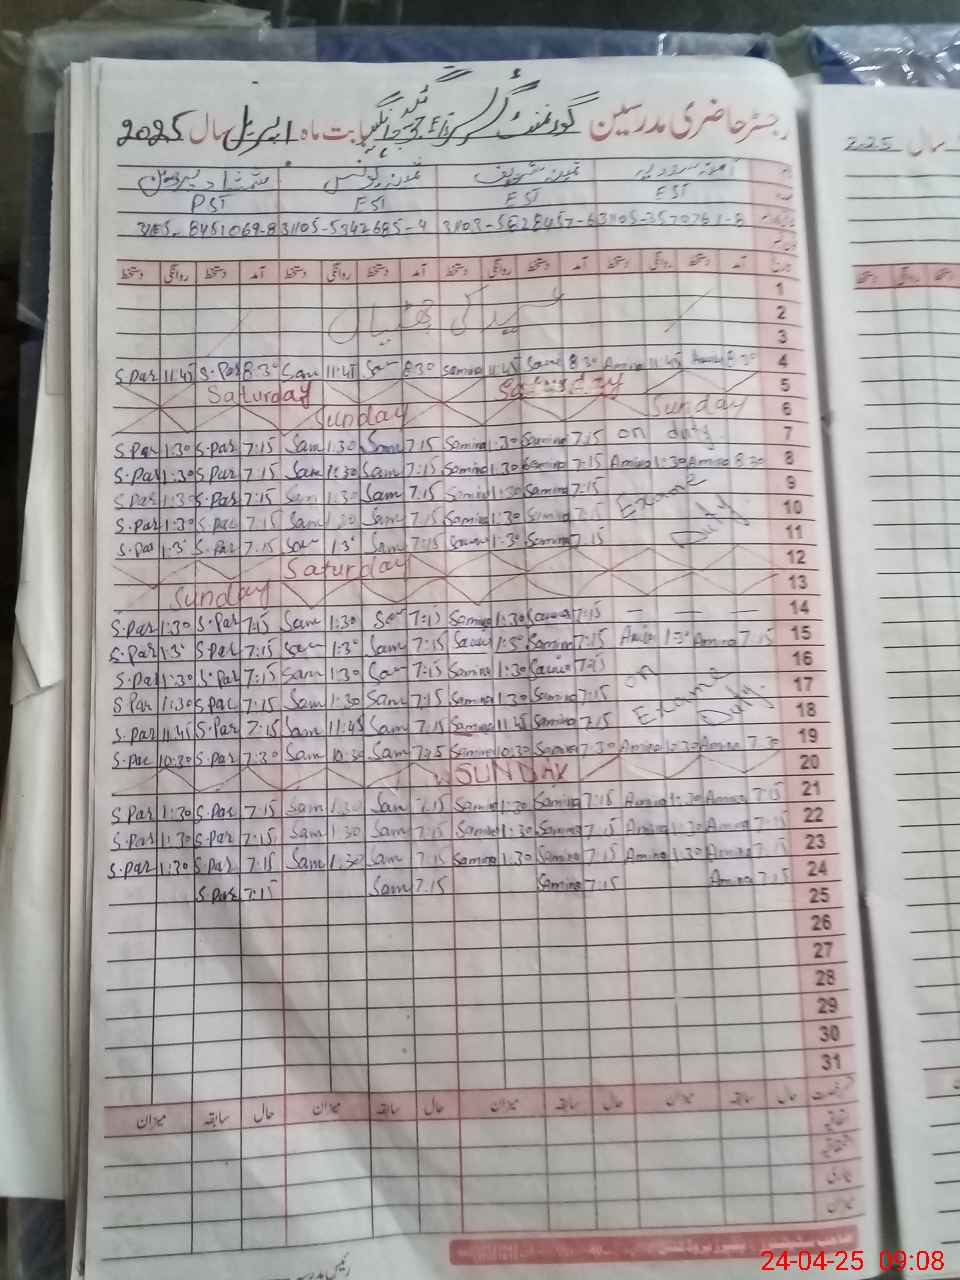 رجسٹر حاضری مدرسین گورنمنٹ گرلز بابت ماہ اپریل سال 2025
2025 سال
PST EST EST EST
8451069-8 31105-5342685-4 31103-5828457-6 31105-3570761-8
دستخط روانگی دستخط آمد دستخط روانگی دستخط آمد دستخط روانگی دستخط آمد دستخط روانگی دستخط آمد تاریخ
1
عید کی چھٹیاں 2
3
S.Par 11:45 S.Par 8:30 Sam 11:45 Sam 8:30 Samina 11:45 Samina 8:30 Amina 11:45 Amina 8:30 4
Saturday Saturday 5
Sunday Sunday 6
S.Par 1:30 S.Par 7:15 Sam 1:30 Sam 7:15 Samina 1:30 Samina 7:15 on duty. 7
S.Par 1:30 S.Par 7:15 Sam 1:30 Sam 7:15 Samina 1:30 Samina 7:15 Amina 1:30 Amina 8:30 8
S.Par 1:30 S.Par 7:15 Sam 1:30 Sam 7:15 Samina 1:30 Samina 7:15 Exame 9
S.Par 1:30 S.Par 7:15 Sam 1:30 Sam 7:15 Samina 1:30 Samina 7:15 Duty. 10
S.Par 1:30 S.Par 7:15 Sam 1:30 Sam 7:15 Samina 1:30 Samina 7:15 11
Saturday 12
Sunday 13
S.Par 1:30 S.Par 7:15 Sam 1:30 Sam 7:15 Samina 1:30 Samina 7:15 — — — 14
S.Par 1:30 S.Par 7:15 Sam 1:30 Sam 7:15 Samina 1:30 Samina 7:15 Amina 1:30 Amina 7:15 15
S.Par 1:30 S.Par 7:15 Sam 1:30 Sam 7:15 Samina 1:30 Samina 7:15 on 16
S.Par 1:30 S.Par 7:15 Sam 1:30 Sam 7:15 Samina 1:30 Samina 7:15 Exame 17
S.Par 11:45 S.Par 7:15 Sam 11:45 Sam 7:15 Samina 11:45 Samina 7:15 Duty. 18
S.Par 10:30 S.Par 7:30 Sam 10:30 Sam Samina 10:30 Samina 7:30 Amina 10:30 Amina 7:30 19
SUNDAY 20
S.Par 1:30 S.Par 7:15 Sam 1:30 Sam 7:15 Samina 1:30 Samina 7:15 Amina 1:30 Amina 7:15 21
S.Par 1:30 S.Par 7:15 Sam 1:30 Sam 7:15 Samina 1:30 Samina 7:15 Amina 1:30 Amina 7:15 22
S.Par 1:30 S.Par 7:15 Sam 1:30 Sam 7:15 Samina 1:30 Samina 7:15 Amina 1:30 Amina 7:15 23
S.Par 7:15 Sam 7:15 Samina 7:15 Amina 7:15 24
25
26
27
28
29
30
31
میزان سابقہ حال میزان سابقہ حال میزان سابقہ حال میزان سابقہ حال
میزان
24-04-25 09:08